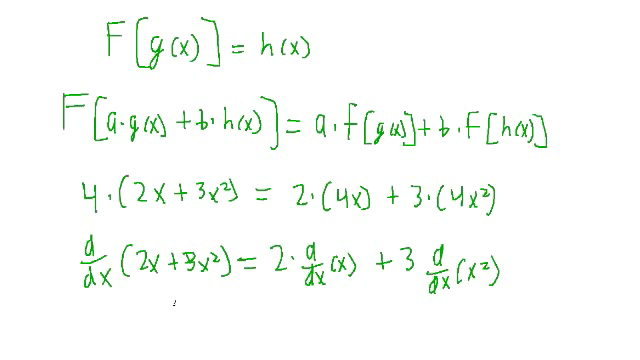 F[g(x)] = h(x)
F[a·g(x) + b·h(x)] = a·f[g(x)] + b·F[h(x)]
4·(2x + 3x²) = 2·(4x) + 3·(4x²)
d/dx (2x + 3x²) = 2·d/dx (x) + 3 d/dx (x²)